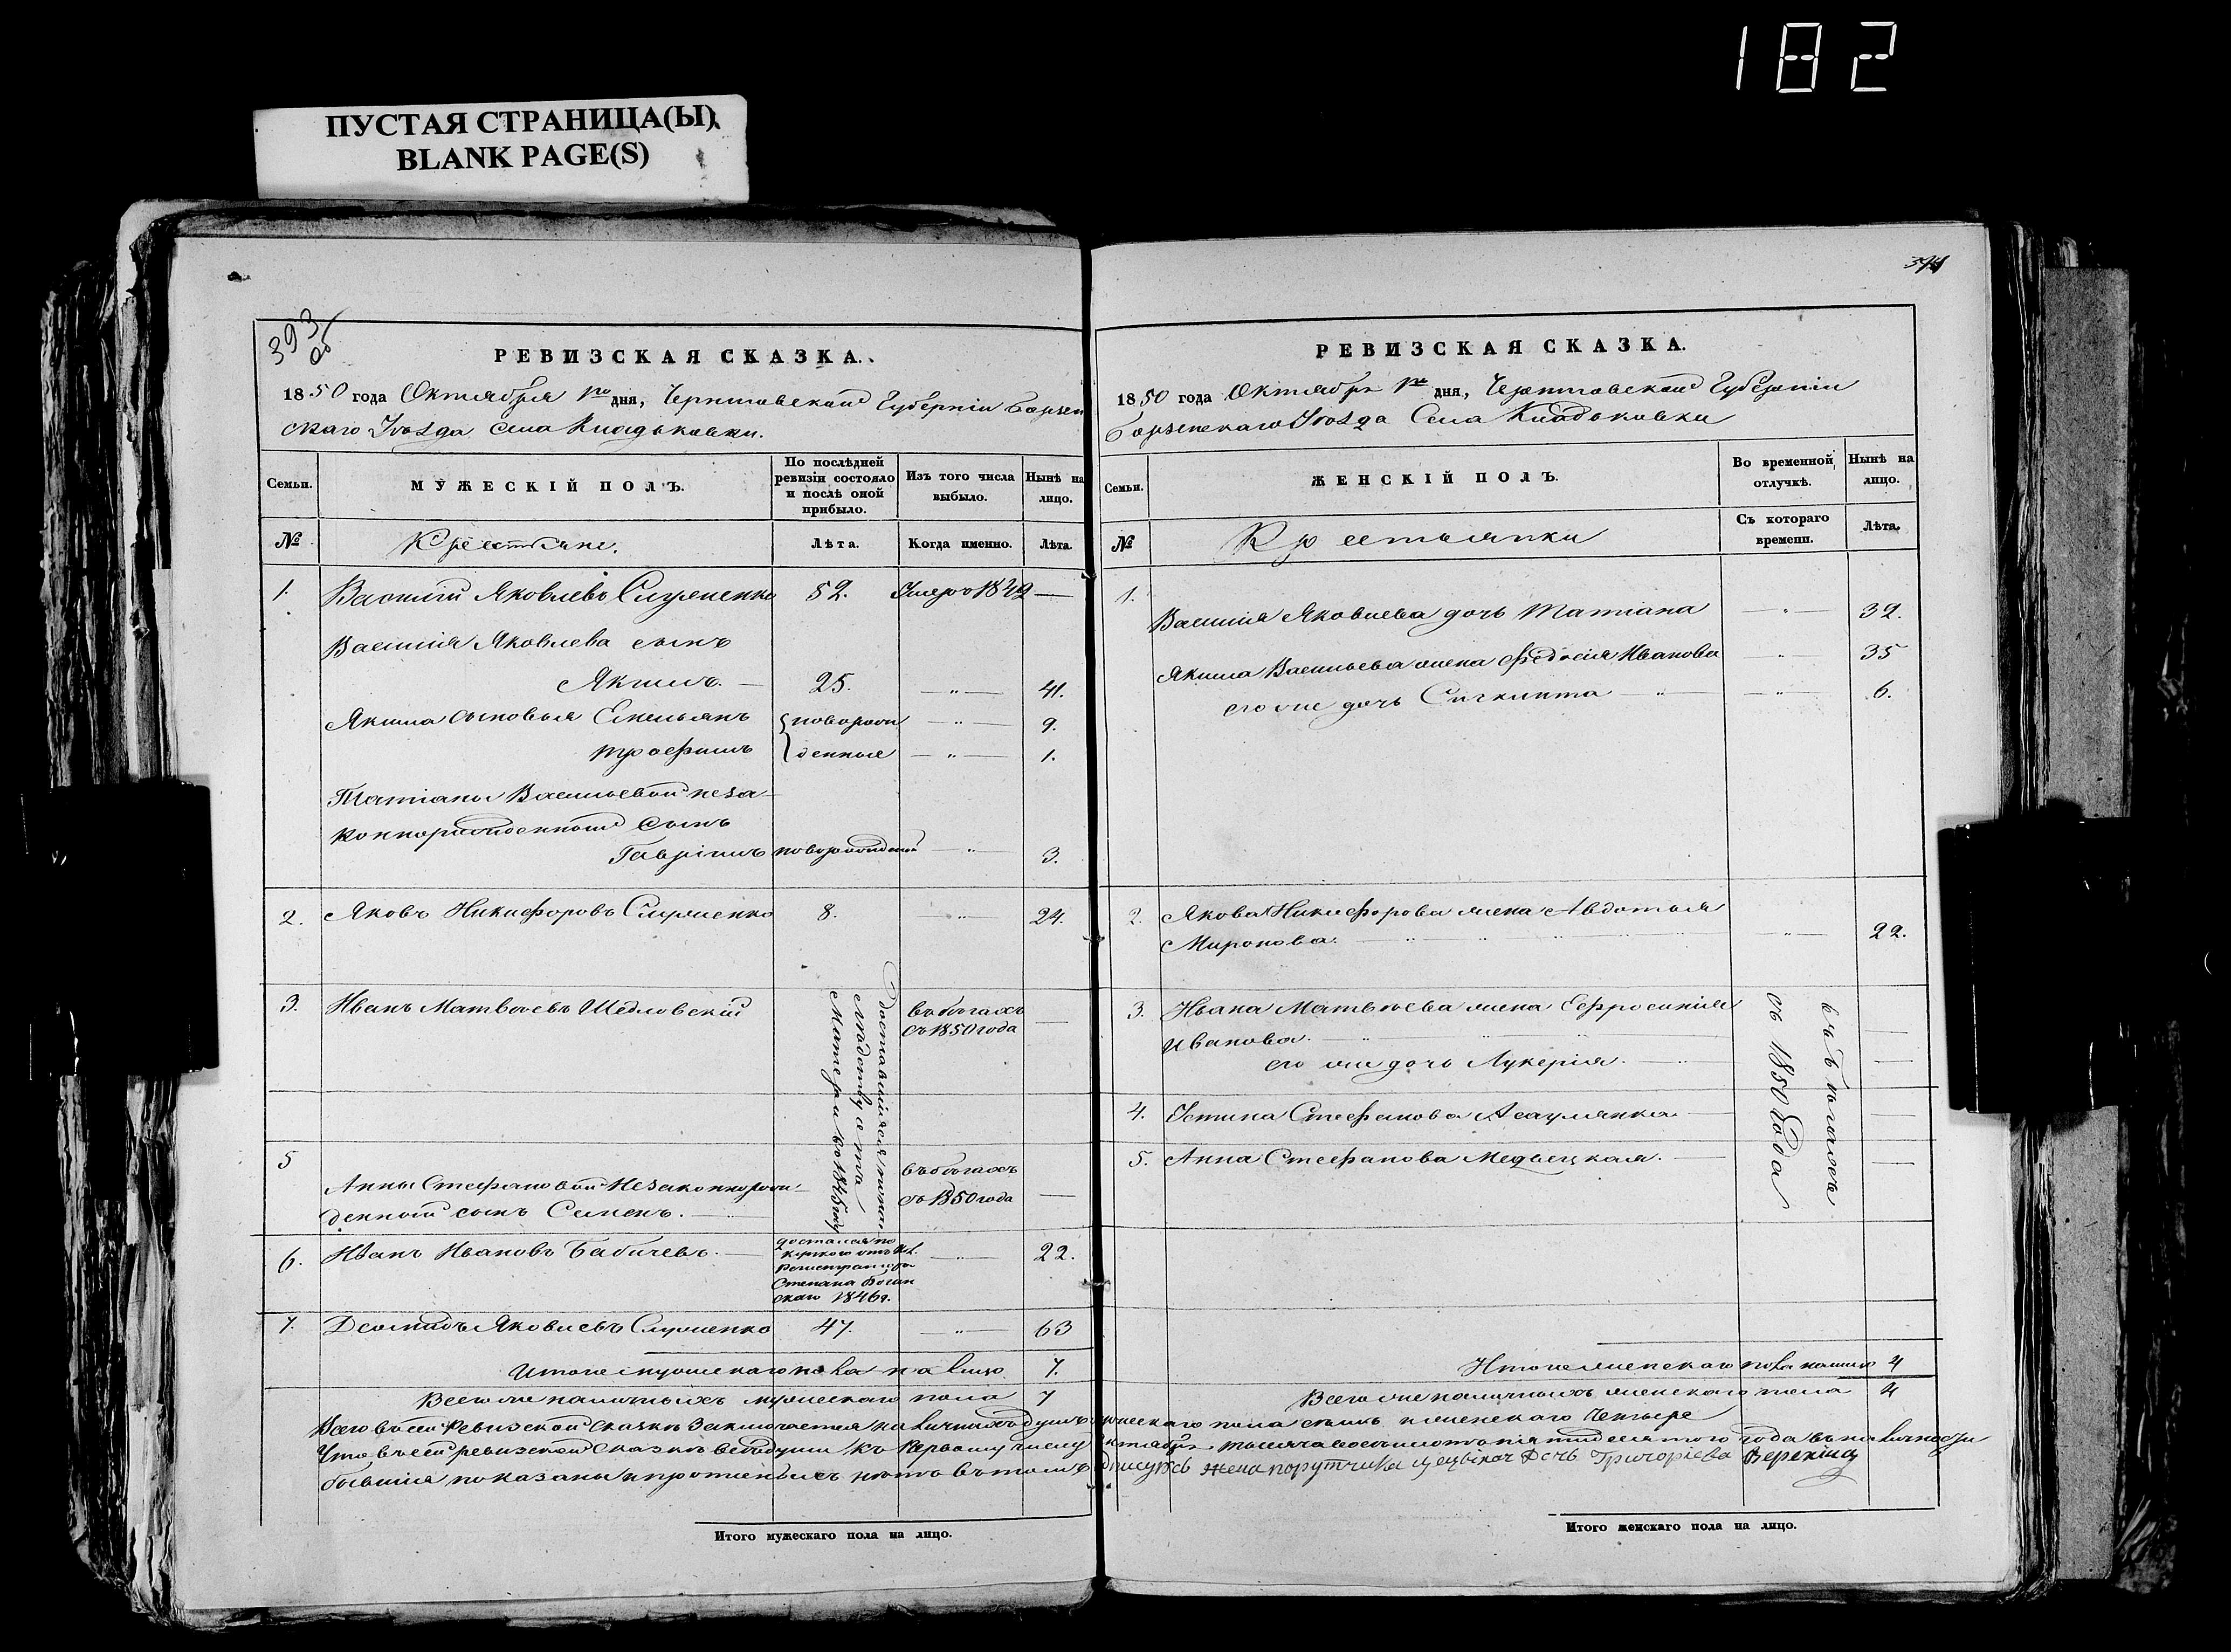 182
ПУСТАЯ СТРАНИЦА(Ы)
BLANK PAGE(S)
393
об
РЕВИЗСКАЯ СКАЗКА.
1850 года Октября 1го дня, Черниговской Губерніи Борзен
скаго Уѣзда Села Кладьковки.
Семьи.
МУЖЕСКІЙ ПОЛЪ.
По послѣдней ревизіи состояло и послѣ оной прибыло.
Изъ того числа выбыло.
Нынѣ на лицо.
№
Крестьяне.
Лѣта.
Когда именно.
Лѣта.
1. Василій Яковлевъ 52. Умеръ 1849 —
Василія Яковлева сынъ
Якимъ. — 25. — " — 41.
Якима сыновья Емельянъ новорож — " — 9.
Трофимъ денные — " — 1.
Татіаны Васильевой неза-
коннорожденной сынъ
Гавріилъ новорожденой — " — 3.
2. Яковъ Никифоровъ 8. " 24.
3. Иванъ Матвѣевъ Шедловскій
въ бѣгахъ
съ 1850 года —
5
Анны Стефановой Незаконнорож-
денный сынъ Семенъ. —
въ бѣгахъ
съ 1850 года —
6. Иванъ Ивановъ Бабичевъ. — " — 22.
достался по
Степана
1846 г.
7. Яковлевъ 47. — " — 63
Итого мужескаго пола на лицо 7.
Всего же наличныхъ мужескаго пола 7
Итого мужескаго пола на лицо.
394
РЕВИЗСКАЯ СКАЗКА.
1850 года Октября 1го дня, Черниговской Губерніи
Борзенскаго Уѣзда Села Кладьковки
Семьи.
ЖЕНСКІЙ ПОЛЪ.
Во временной отлучкѣ.
Нынѣ на лицо.
№
Крестьянки
Съ котораго времени.
Лѣта.
1.
Василія Яковлева дочь Татіана " — 39.
Якима Васильева жена Федосія Иванова — " — 35
его же дочь — " — — " — 6.
2. Якова Никифорова жена Авдотья
Миронова. — " — 22.
3. Ивана Матвѣева жена Ефросинія
Иванова. —
его же дочь Лукерія. —
въ бѣгахъ
съ 1850 года
4. Устина Стефанова —
5. Анна Стефанова —
Итого женскаго пола на лицо 4
Всего же наличныхъ женскаго пола 4
Всего въ сей Ревизской Сказкѣ Заключается наличныхъ душъ мужескаго пола семь и женскаго Четыре
Что въ сей ревизской Сказкѣ всѣ души къ Первому числу Октября тысяча восемьсотъ пятидесятого года въ наличности
бывшія показаны
жена порутчика дочь Григоріева
Итого женскаго пола на лицо.